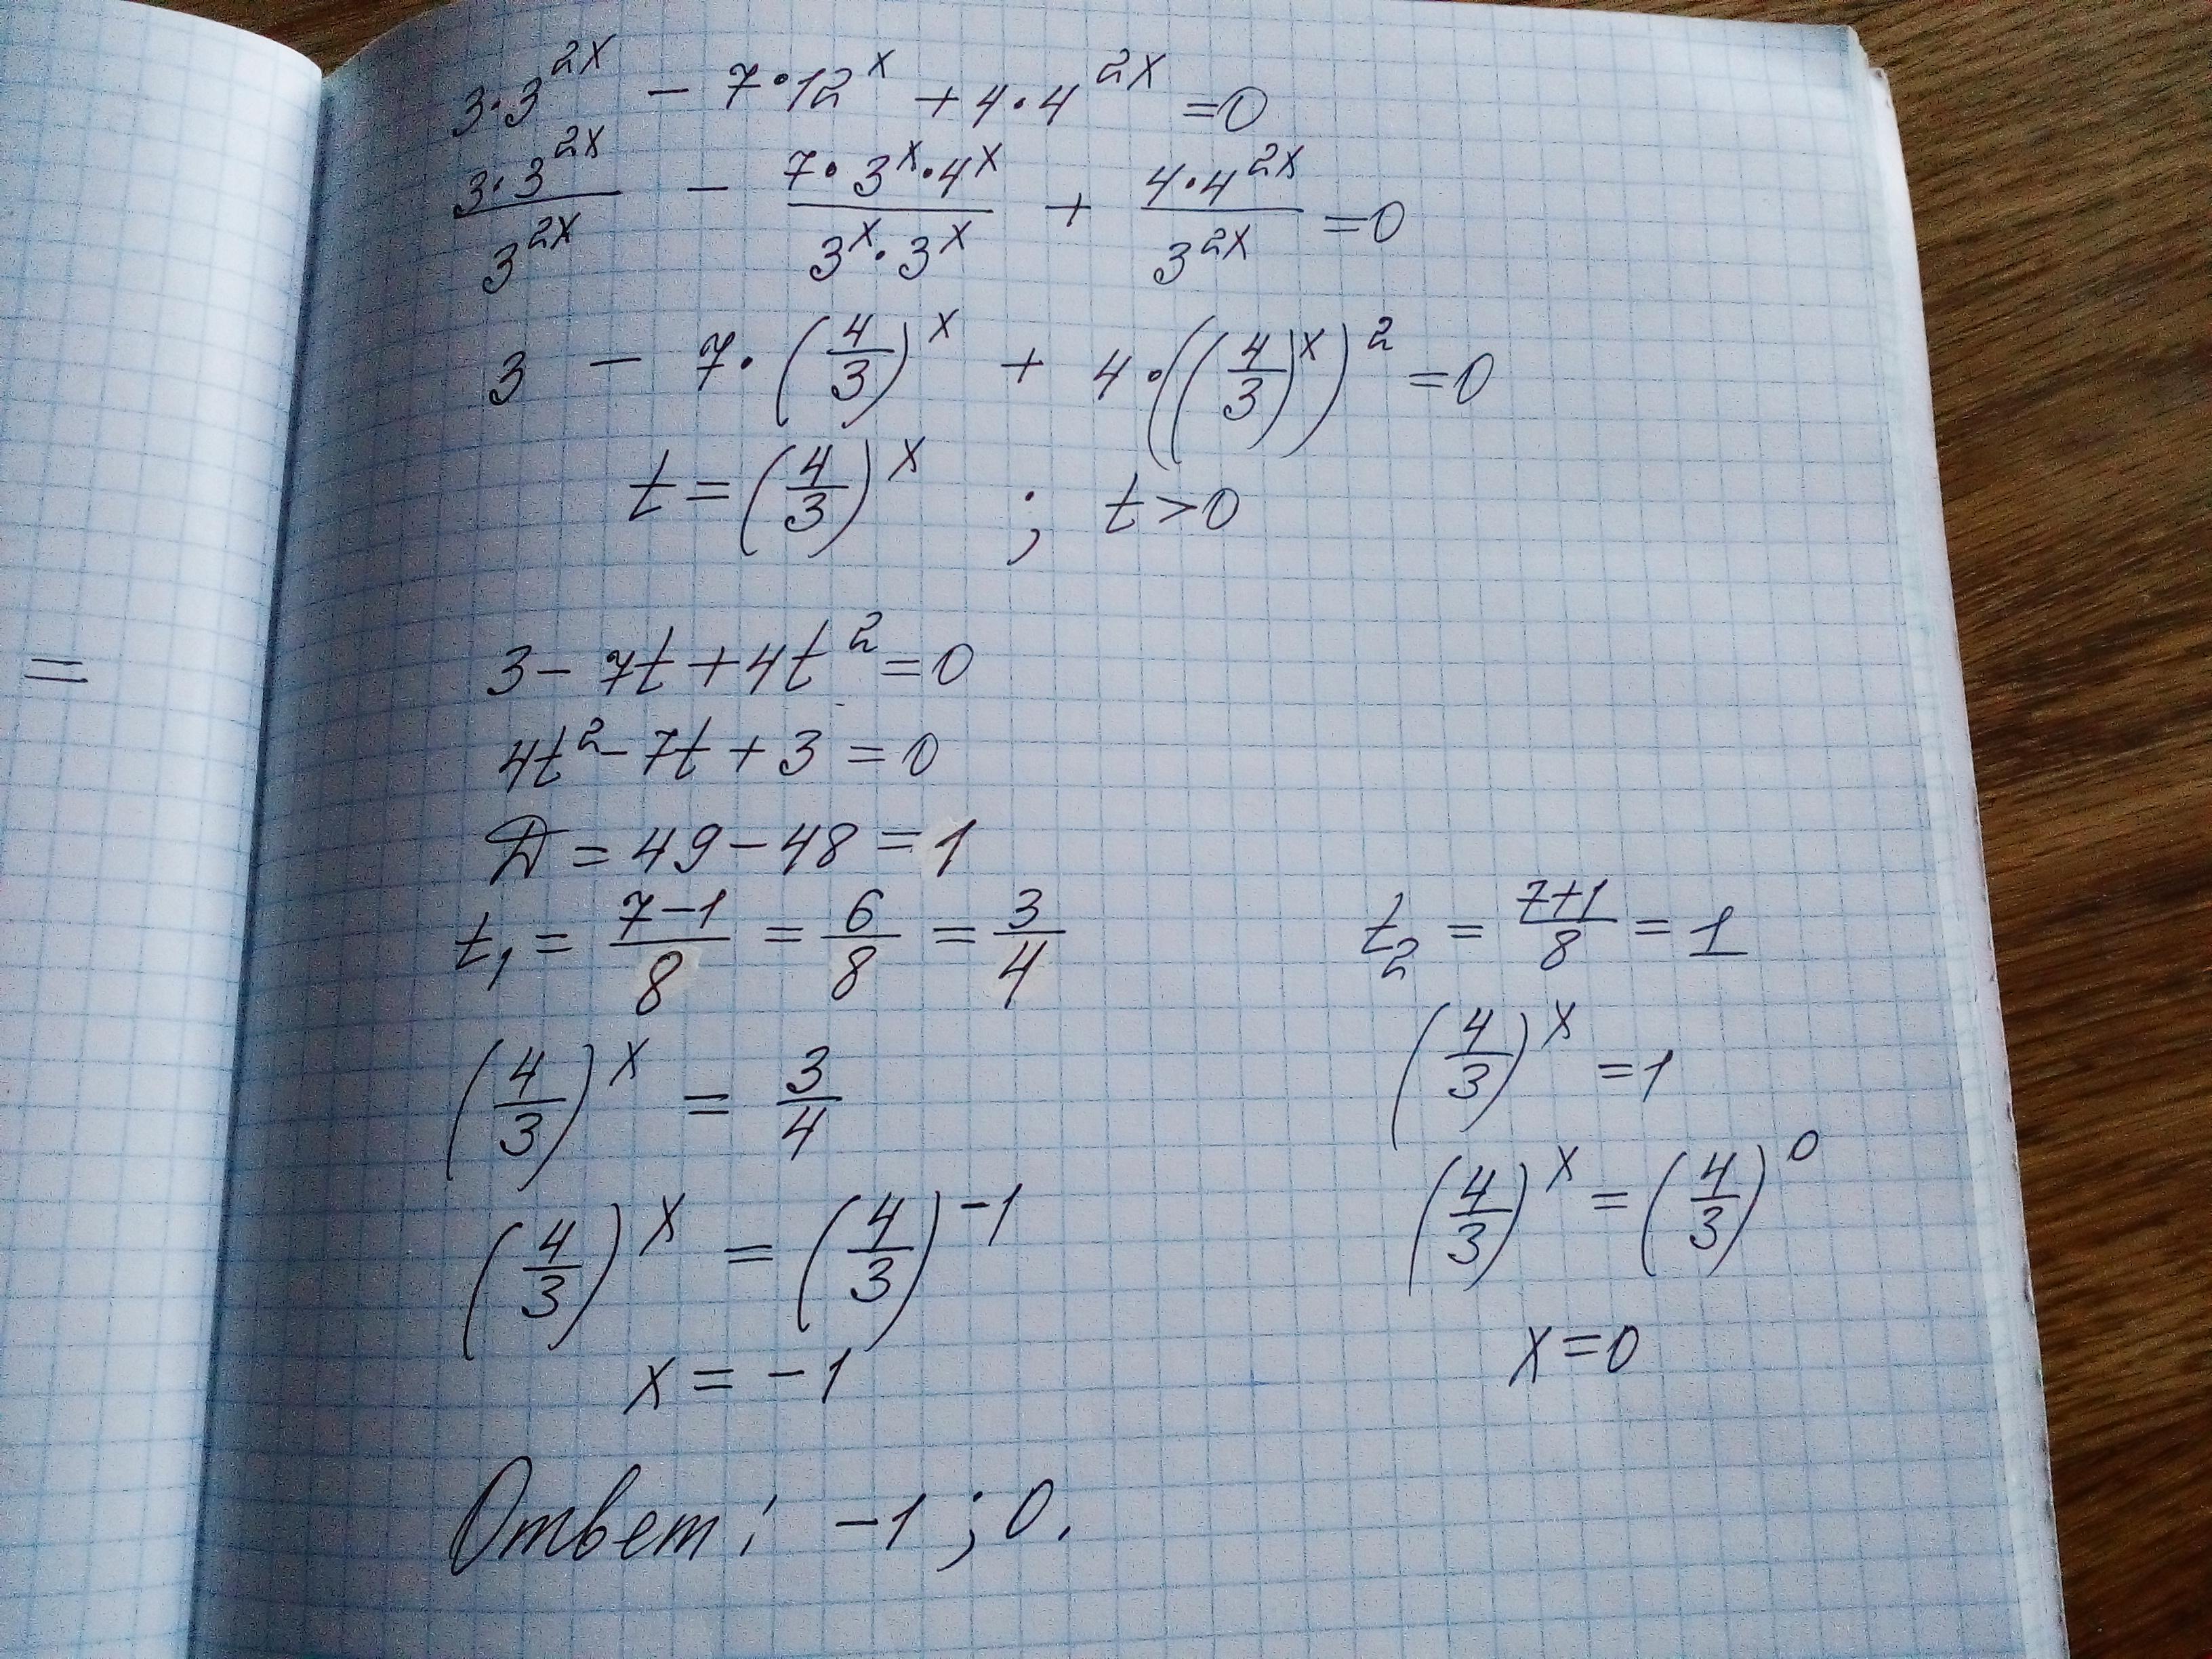 3·3^{2x} − 7·12^x + 4·4^{2x} = 0
\frac{3·3^{2x}}{3^{2x}} − \frac{7·3^x·4^x}{3^x·3^x} + \frac{4·4^{2x}}{3^{2x}} = 0
3 − 7·(\frac{4}{3})^x + 4·((\frac{4}{3})^x)^2 = 0
t = (\frac{4}{3})^x ; t > 0
=
3 − 7t + 4t^2 = 0
4t^2 − 7t + 3 = 0
D = 49 − 48 = 1
t_1 = \frac{7−1}{8} = \frac{6}{8} = \frac{3}{4}
(\frac{4}{3})^x = \frac{3}{4}
(\frac{4}{3})^x = (\frac{4}{3})^{−1}
x = −1
t_2 = \frac{7+1}{8} = 1
(\frac{4}{3})^x = 1
(\frac{4}{3})^x = (\frac{4}{3})^0
x = 0
Ответ: −1 ; 0.